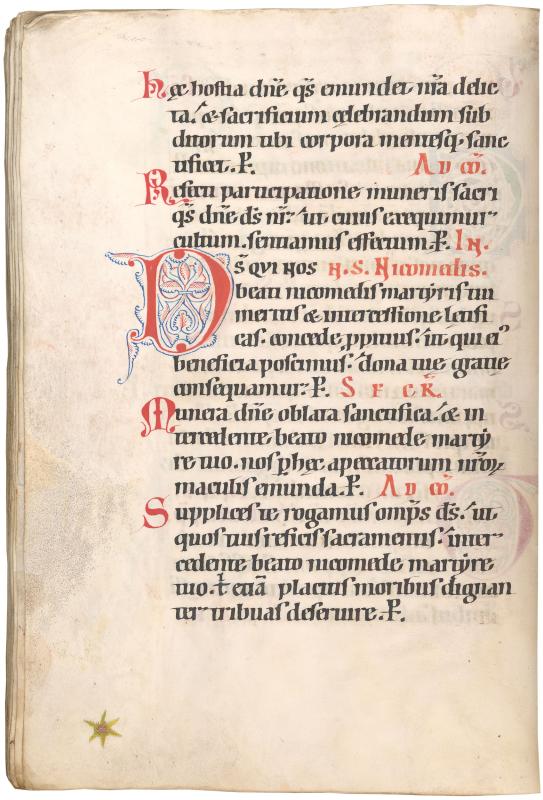 hęc hostia dn̄e q̄s emundet nr̄a delic
ta. & sacrificium cęlebrandum sub
ditorum tibi corpora mentesq; sanc
tificet. P. AD CŌ.
Refecti participatione muneris sacri
q̄s dn̄e ds̄ nr̄. ut cuius exequimur
cultum. sentiamus effectum. P. IN.
Ds̄ QVI NOS N. S. Nicomedis.
beati nicomedis martyris tui
meritis & intercessione letifi
cas. concede ppitius. ut qui ei᾽
beneficia poscimus. dona tuę gratię
consequamur. P. S E C R.
Munera dn̄e oblata sanctifica. & in
tercedente beato nicomede marty
re tuo. nos p hęc a peccatorum nr̄oꝝ
maculis emunda. P. AD CŌ.
Supplices te rogamus omps̄ ds̄. ut
quos tuis reficis sacramentis. inter
cedente beato nicomede martyre
tuo. t̄ etiā placitis moribus dignan
ter tribuas deseruire. P.